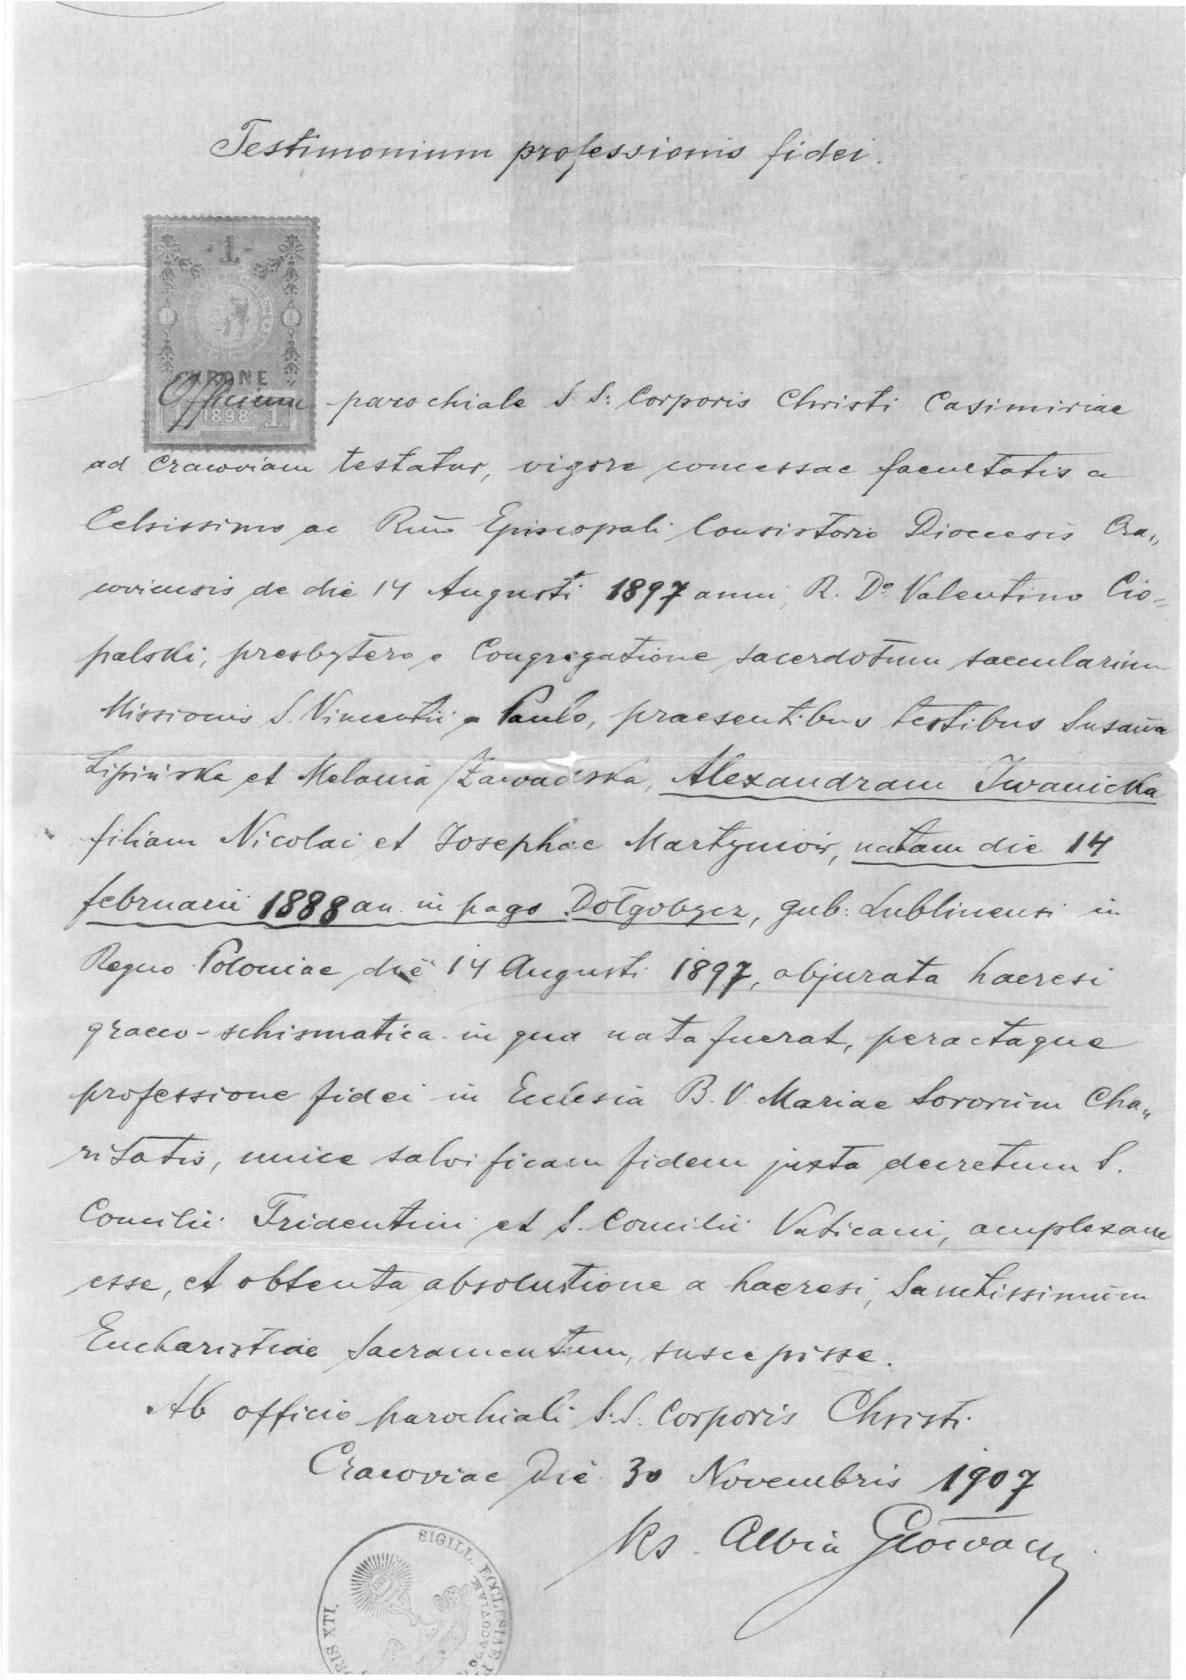 Testimonium professionis fidei.
1
CORONE
1 1898 1
Officium parochiale S S: Corporis Christi Casimiriae
ad Cracoviam testatur, vigore concessae facultatis a
Celsissimo ac Rmo Episcopali Consistorio Dioecesis Cra„
coviensis de die 14 Augusti 1897 anni, R. Do Valentino Cio=
palski, presbytero e Congregatione sacerdotum saecularium
Missionis S. Vincentii a Paulo, praesentibus testibus Susanna
Lipińska et Melania Zawadzka, Alexandram Iwanicka
filiam Nicolai et Josephae Martynioir, natam die 14
februarii 1888 an. in pago Dołgobycz, gub: Lublinensi in
Regno Poloniae die 14 Augusti 1897, abjurata haeresi
graeco-schismatica in qua nata fuerat, peractaque
professione fidei in Ecclesia B. V. Mariae Sororum Cha„
ritatis, unice salvificam fidem juxta decretum S.
Concilii Tridentini et S. Concilii Vaticani, amplexam
esse, et obtenta absolutione a haeresi, Sanctissimum
Eucharistiae Sacramentum, suscepisse.
Ab officio parochiali S.S. Corporis Christi.
Cracoviae Die 30 Novembris 1907
Ks. Albin
SIGILL. ECCLESIAE P
ORIS XTI.